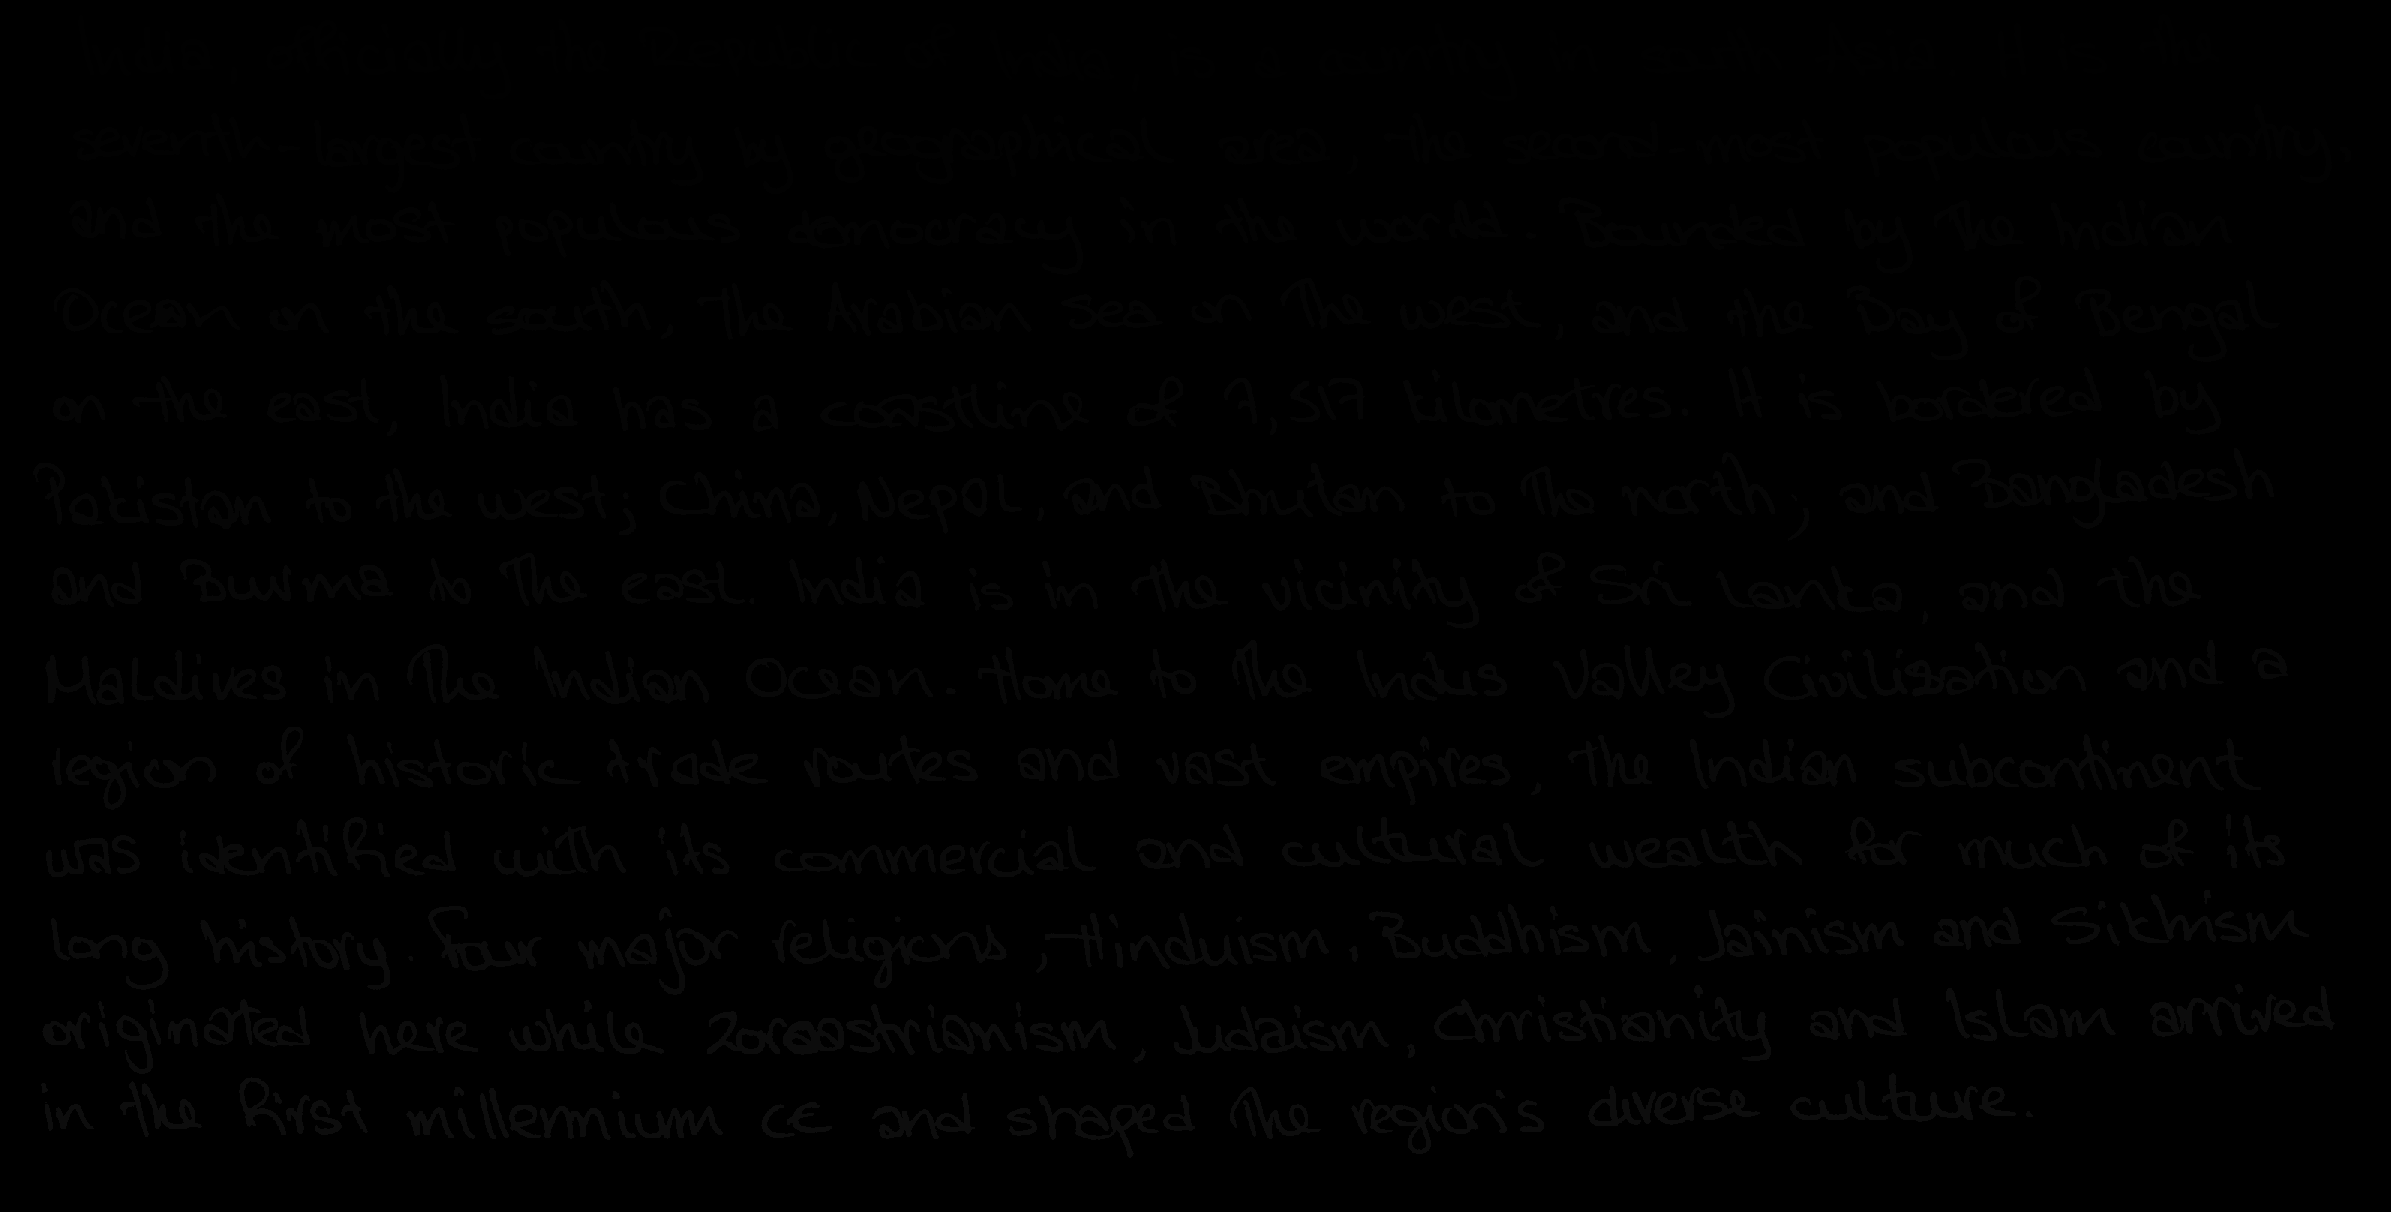 India, officially the Republic of India, is a country in South Asia. It is the
seventh-largest country by geographical area, the second-most populous country,
and the most populous democracy in the world. Bounded by the Indian
Ocean on the south, the Arabian Sea on the west, and the Bay of Bengal
on the east, India has a coastline of 7,517 kilometres. It is bordered by
Pakistan to the west; China, Nepal, and Bhutan to the north; and Bangladesh
and Burma to the east. India is in the vicinity of Sri Lanka, and the
Maldives in the Indian Ocean. Home to the Indus Valley Civilisation and a
region of historic trade routes and vast empires, the Indian subcontinent
was identified with its commercial and cultural wealth for much of its
long history. Four major religions, Hinduism, Buddhism, Jainism and Sikhism
originated here while Zoroastrianism, Judaism, Christianity and Islam arrived
in the first millennium CE and shaped the region's diverse culture.